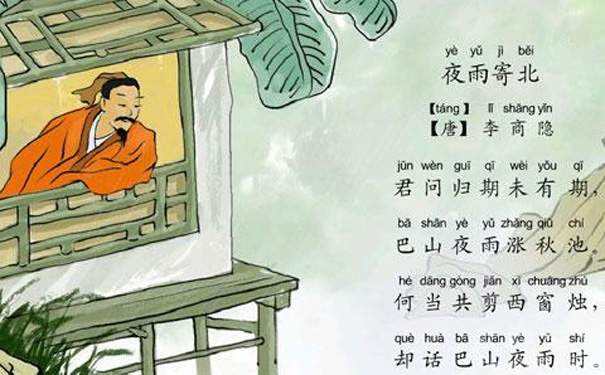 yè yǔ jì běi
夜雨寄北
【táng】 lǐ shāng yǐn
【唐】李商隐
jūn wèn guī qī wèi yǒu qī
君问归期未有期，
bā shān yè yǔ zhàng qiū chí
巴山夜雨涨秋池。
hé dāng gòng jiǎn xī chuāng zhú
何当共剪西窗烛，
què huà bā shān yè yǔ shí
却话巴山夜雨时。